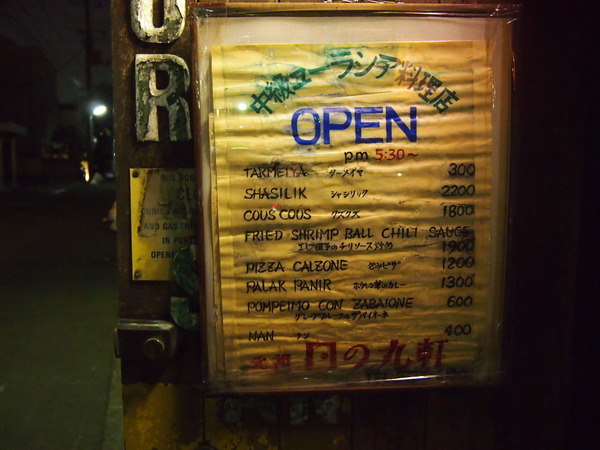 UR
中級ユーラシア料理店
OPEN
pm 5:30~
TARMEIYA ターメイヤ 300
SHASILIK シャシリック 2200
COUS COUS クスクス 1800
FRIED SHRIMP BALL CHILI SAUCE
エビ団子のチリソース炒め 1900
PIZZA CALZONE 包みピザ 1200
PALAK PANIR ホウレン草のカレー 1300
POMPEIMO CON ZABAIONE 600
グレープフルーツのザバイオーネ
NAN ナン 400
元祖 日の丸軒